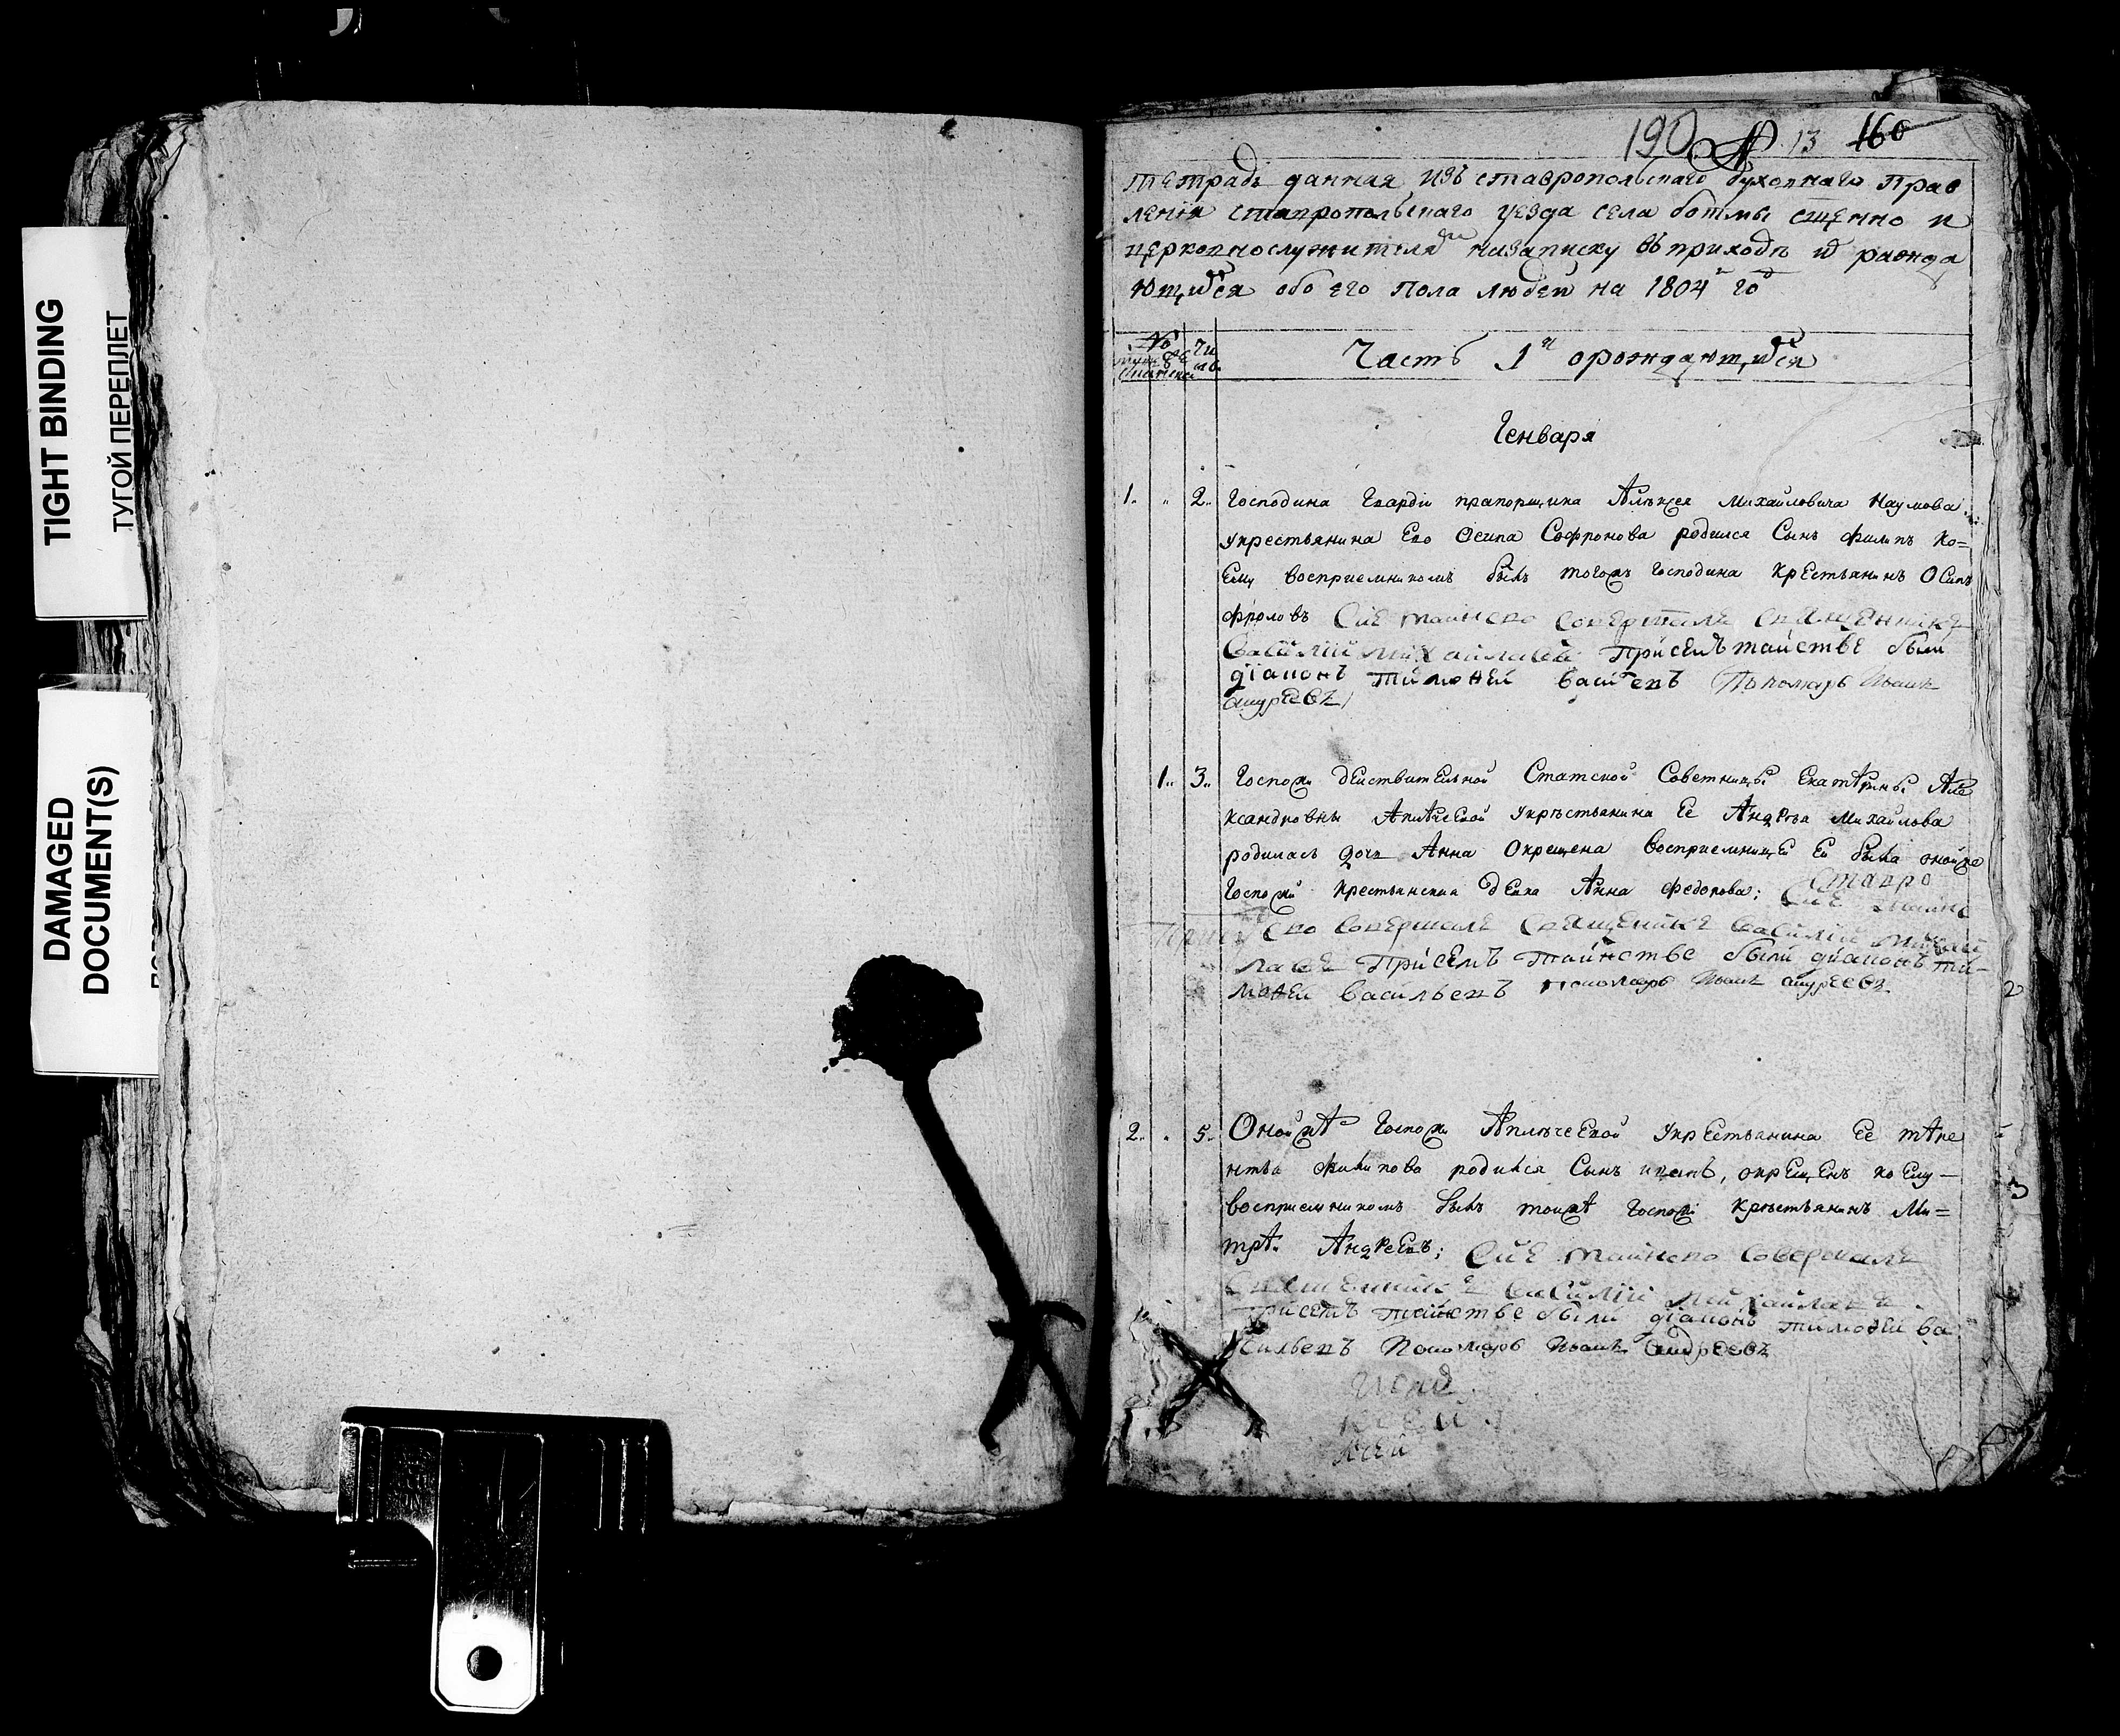 TIGHT BINDING
ТУГОЙ ПЕРЕПЛЕТ
DAMAGED
DOCUMENT(S)
190 № 13 160
тетрадь данная изъ ставропольскаго духовнаго прав
ленія ставропольскаго уезда села ботмы сщенно и
церковнослужителямъ назаписку въ приходѣ ихъ раожда
ющихся обоего пола людей на 1804й годъ
№ Чи
Часть 1я орождающихся
Генваря
1. 2. Господина Гвардіи прапорщика Алѣксея Михайловича Наумова
укрестьянина Его Осипа Софронова родился Сынъ филипъ ко=
Ему восприемникомъ былъ тогожъ господина крестьянинъ Осипъ
фроловъ Сие таинсво совершалъ священникъ
Василий Михайлавъ Присемъ таистве были
діаконъ тимофей васильевъ Пономарь Иванъ
андреевъ
1. 3. Госпожи действительной Статской Советницы Екатерины Але
ксандровны Апличеевой укрестьянина Ее Андрея Михайлова
родилась дочь Анна Окрещена Восприемницей Ей была онойже
Госпожи крестьянская девка Анна Федорова; Ставро
Сие таинс
сво совершалъ Священникъ василий Михай
лавъ Присемъ таинстве были діаконъ ти-
мофей Васильевъ пономарь Иванъ андреевъ
2
2. 5. Онойже Госпожи Апличеевой укрестьянина Ее тере
нтья филипова родился Сынъ иванъ, окрещенъ коему—
восприемникомъ былъ тоиже Госпожи крестьянинъ Ми=
3
трей Андреевъ; Сие таинсво совершалъ
Священникъ василий Михайлавъ
Присемъ таинстве были діаконъ тимофей ва
сильевъ Пономарь Иванъ андреевъ